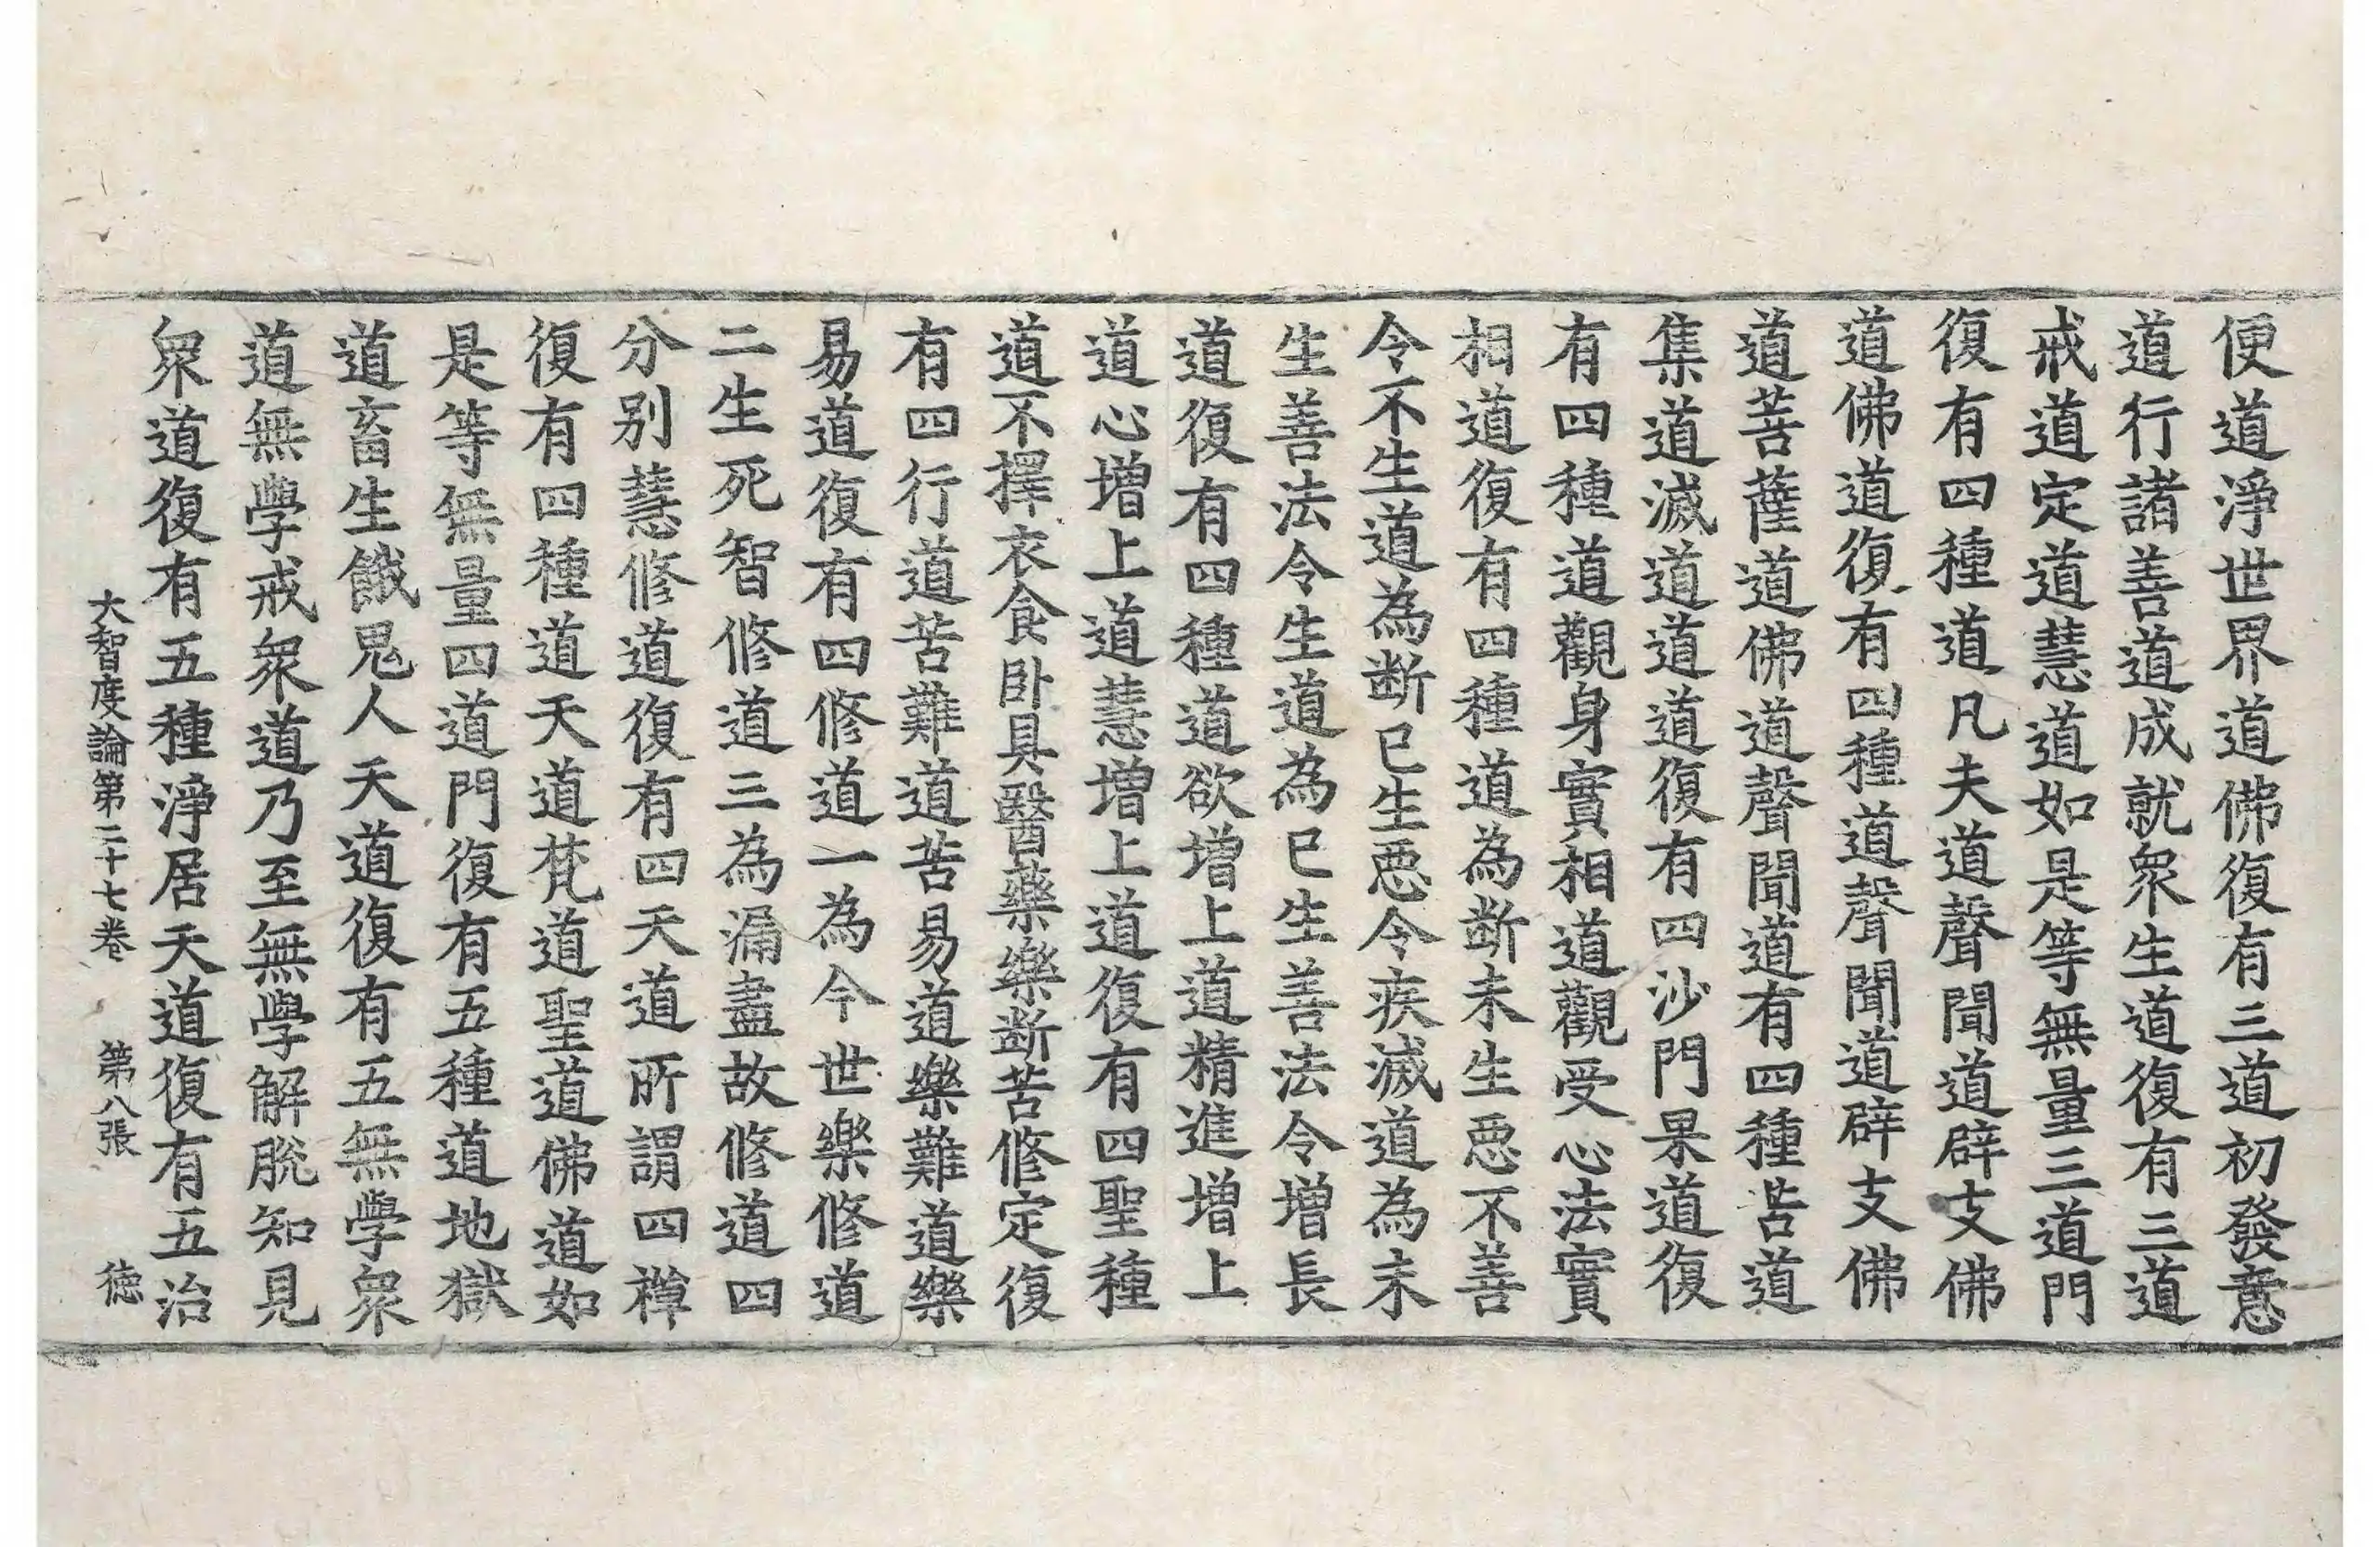 便道淨世界道佛復有三道初發意
道行諸善道成就衆生道復有三道
戒道定道慧道如是等無量三道門
復有四種道凡夫道聲聞道辟支佛
道佛道復有四種道聲聞道辟支佛
道菩薩道佛道聲聞道有四種苦道
集道滅道道道復有四沙門果道復
有四種道觀身實相道觀受心法實
相道復有四種道為斷未生惡不善
令不生道為斷已生惡令疾滅道為未
生善法令生道為已生善法令增長
道復有四種道欲增上道精進增上
道心增上道慧增上道復有四聖種
道不擇衣食卧具醫藥樂斷苦修定復
有四行道苦難道苦易道樂難道樂
易道復有四修道一為今世樂修道
二生死智修道三為漏盡故修道四
分別慧修道復有四天道所謂四禪
復有四種道天道梵道聖道佛道如
是等無量四道門復有五種道地獄
道畜生餓鬼人天道復有五無學衆
道無學戒衆道乃至無學解脫知見
衆道復有五種淨居天道復有五治
大智度論第二十七卷 第八張 德